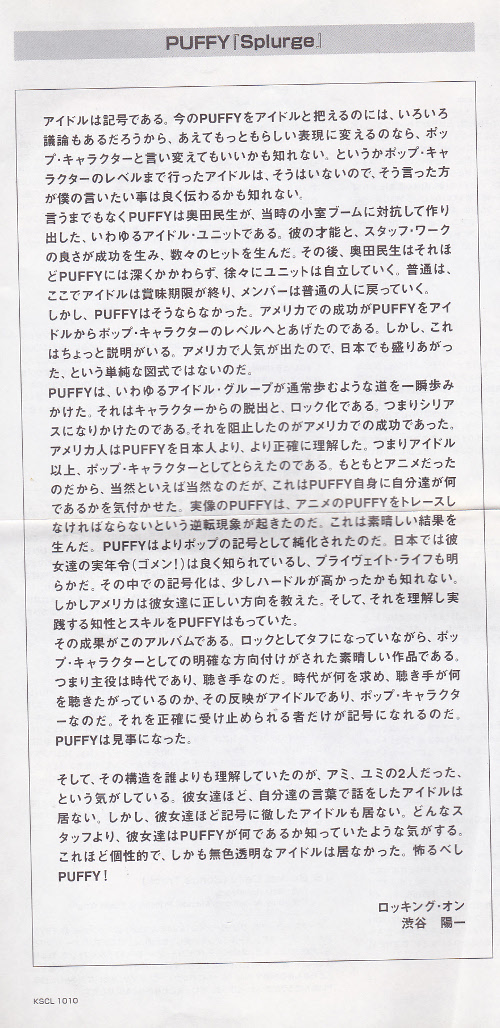 PUFFY『Splurge』
アイドルは記号である。今のPUFFYをアイドルと把えるのには、いろいろ
議論もあるだろうから、あえてもっともらしい表現に変えるのなら、ポッ
プ・キャラクターと言い変えてもいいかも知れない。というかポップ・キャ
ラクターのレベルまで行ったアイドルは、そうはいないので、そう言った方
が僕の言いたい事は良く伝わるかも知れない。
言うまでもなくPUFFYは奥田民生が、当時の小室ブームに対抗して作り
出した、いわゆるアイドル・ユニットである。彼の才能と、スタッフ・ワーク
の良さが成功を生み、数々のヒットを生んだ。その後、奥田民生はそれほ
どPUFFYには深くかかわらず、徐々にユニットは自立していく。普通は、
ここでアイドルは賞味期限が終り、メンバーは普通の人に戻っていく。
しかし、PUFFYはそうならなかった。アメリカでの成功がPUFFYをアイ
ドルからポップ・キャラクターのレベルへとあげたのである。しかし、これ
はちょっと説明がいる。アメリカで人気が出たので、日本でも盛りあがっ
た、という単純な図式ではないのだ。
PUFFYは、いわゆるアイドル・グループが通常歩むような道を一瞬歩み
かけた。それはキャラクターからの脱出と、ロック化である。つまりシリア
スになりかけたのである。それを阻止したのがアメリカでの成功であった。
アメリカ人はPUFFYを日本人より、より正確に理解した。つまりアイドル
以上、ポップ・キャラクターとしてとらえたのである。もともとアニメだった
のだから、当然といえば当然なのだが、これはPUFFY自身に自分達が何
であるかを気付かせた。実像のPUFFYは、アニメのPUFFYをトレースし
なければならないという逆転現象が起きたのだ。これは素晴しい結果を
生んだ。PUFFYはよりポップの記号として純化されたのだ。日本では彼
女達の実年令(ゴメン!)は良く知られているし、プライヴェイト・ライフも明
らかだ。その中での記号化は、少しハードルが高かったかも知れない。
しかしアメリカは彼女達に正しい方向を教えた。そして、それを理解し実
践する知性とスキルをPUFFYはもっていた。
その成果がこのアルバムである。ロックとしてタフになっていながら、ポッ
プ・キャラクターとしての明確な方向付けがされた素晴しい作品である。
つまり主役は時代であり、聴き手なのだ。時代が何を求め、聴き手が何
を聴きたがっているのか、その反映がアイドルであり、ポップ・キャラクタ
ーなのだ。それを正確に受け止められる者だけが記号になれるのだ。
PUFFYは見事になった。
そして、その構造を誰よりも理解していたのが、アミ、ユミの2人だった、
という気がしている。彼女達ほど、自分達の言葉で話をしたアイドルは
居ない。しかし、彼女達ほど記号に徹したアイドルも居ない。どんなス
タッフより、彼女達はPUFFYが何であるか知っていたような気がする。
これほど個性的で、しかも無色透明なアイドルは居なかった。怖るべし
PUFFY!
ロッキング・オン
渋谷 陽一
KSCL 1010